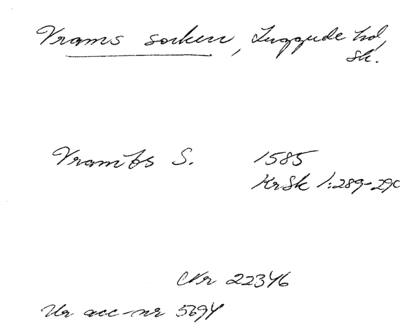 Vrams socken, Luggude hd,
Sk.
Vrambs S. 1585
KrSk 1:289-290
Nr 22346
Ur acc-nr 5694